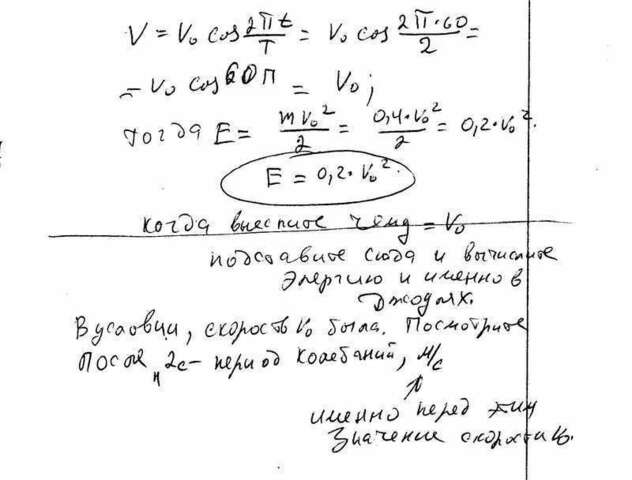 V = V₀ cos 2πt/T = V₀ cos 2π·60/2 =
= V₀ cos 60π = V₀;
тогда E = mV₀²/2 = 0,4·V₀²/2 = 0,2·V₀².
E = 0,2·V₀².
когда = V₀
подставите сюда и вычислите
энергию и именно в
Джоулях.
В условии, скорость V₀ была. Посмотрите
После "2с – период колебаний, м/с
именно перед этим
Значение скорости V₀.